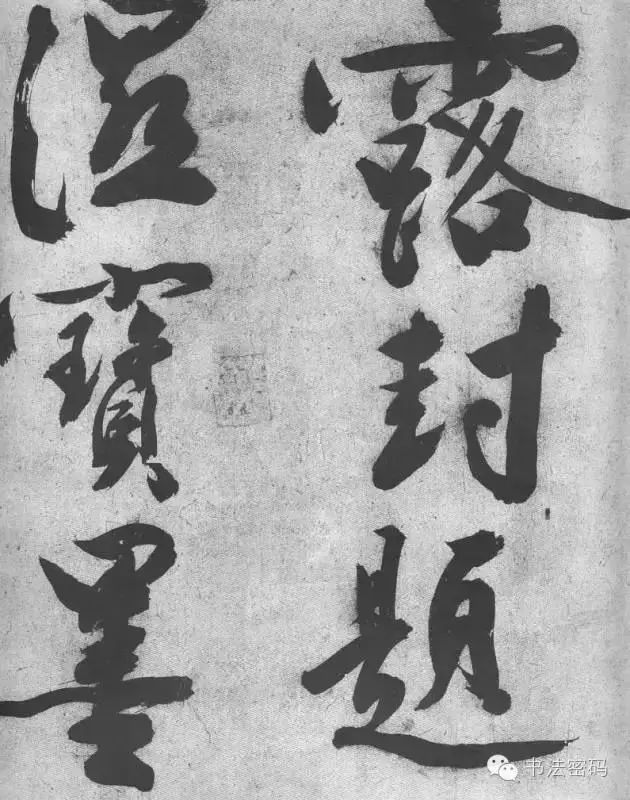 露封題
湿寶墨
书法密码